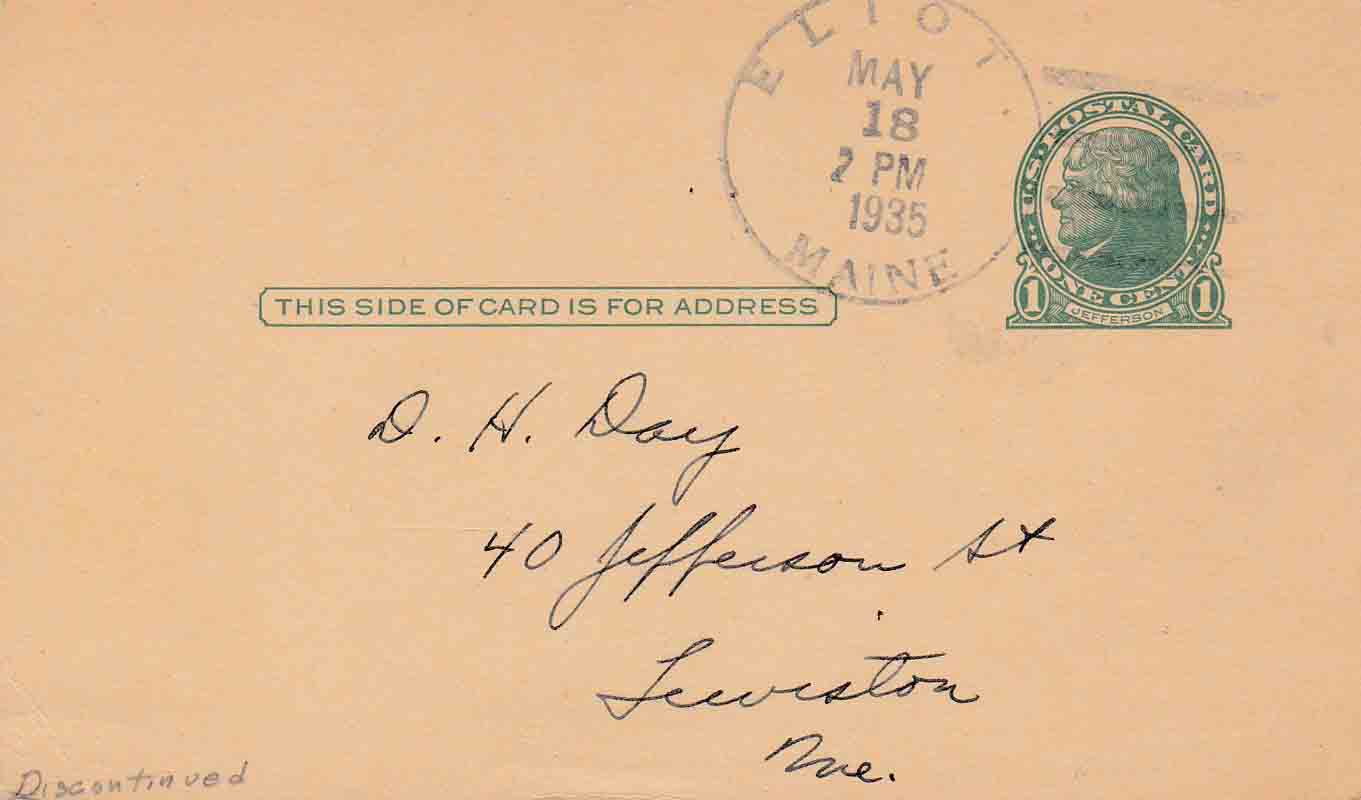 ELIOT
MAY
18
2 PM
1935
MAINE
U.S. POSTAL CARD
ONE CENT
1 JEFFERSON 1
THIS SIDE OF CARD IS FOR ADDRESS
D. H. Day
40 Jefferson St
Lewiston
Me.
Discontinued